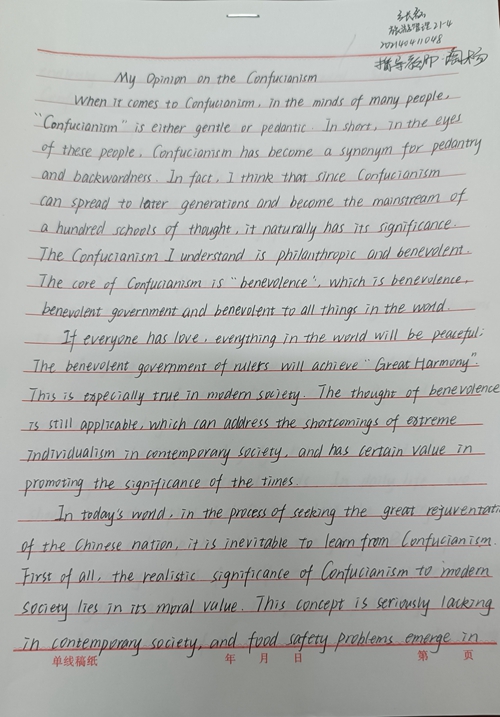 旅游管理21-4
202140411048
指导教师:
My Opinion on the Confucianism
When it comes to Confucianism, in the minds of many people,
"Confucianism" is either gentle or pedantic. In short, in the eyes
of these people, Confucianism has become a synonym for pedantry
and backwardness. In fact, I think that since Confucianism
can spread to later generations and become the mainstream of
a hundred schools of thought, it naturally has its significance.
The Confucianism I understand is philanthropic and benevolent.
The core of Confucianism is "benevolence", which is benevolence,
benevolent government and benevolent to all things in the world.
If everyone has love, everything in the world will be peaceful;
The benevolent government of rulers will achieve "Great Harmony".
This is especially true in modern society. The thought of benevolence
is still applicable, which can address the shortcomings of extreme
individualism in contemporary society, and has certain value in
promoting the significance of the times.
In today's world, in the process of seeking the great rejuventati
of the Chinese nation, it is inevitable to learn from Confucianism.
First of all, the realistic significance of Confucianism to modern
society lies in its moral value. This concept is seriously lacking
in contemporary society, and food safety problems emerge in
单线稿纸 年 月 日 第 页